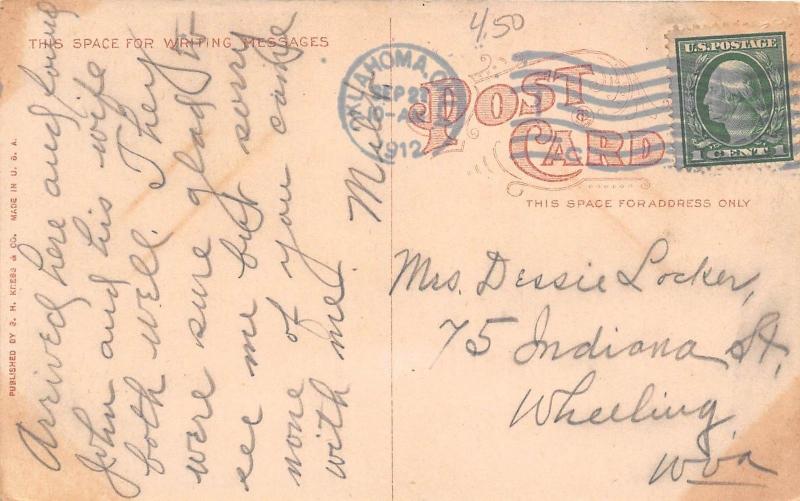 THIS SPACE FOR WRITING MESSAGES
Arrived here and found
John and his wife
both well. They
were sure glad to
see me but sorry
none of you came
with me.
PUBLISHED BY S. H. KRESS & CO. MADE IN U. S. A.
450
OKLAHOMA,
10-A
1912
POST
CARD
U.S. POSTAGE
1 CENT 1
THIS SPACE FOR ADDRESS ONLY
Mrs. Dessie Locker,
75 Indiana St,
Wheeling
W Va